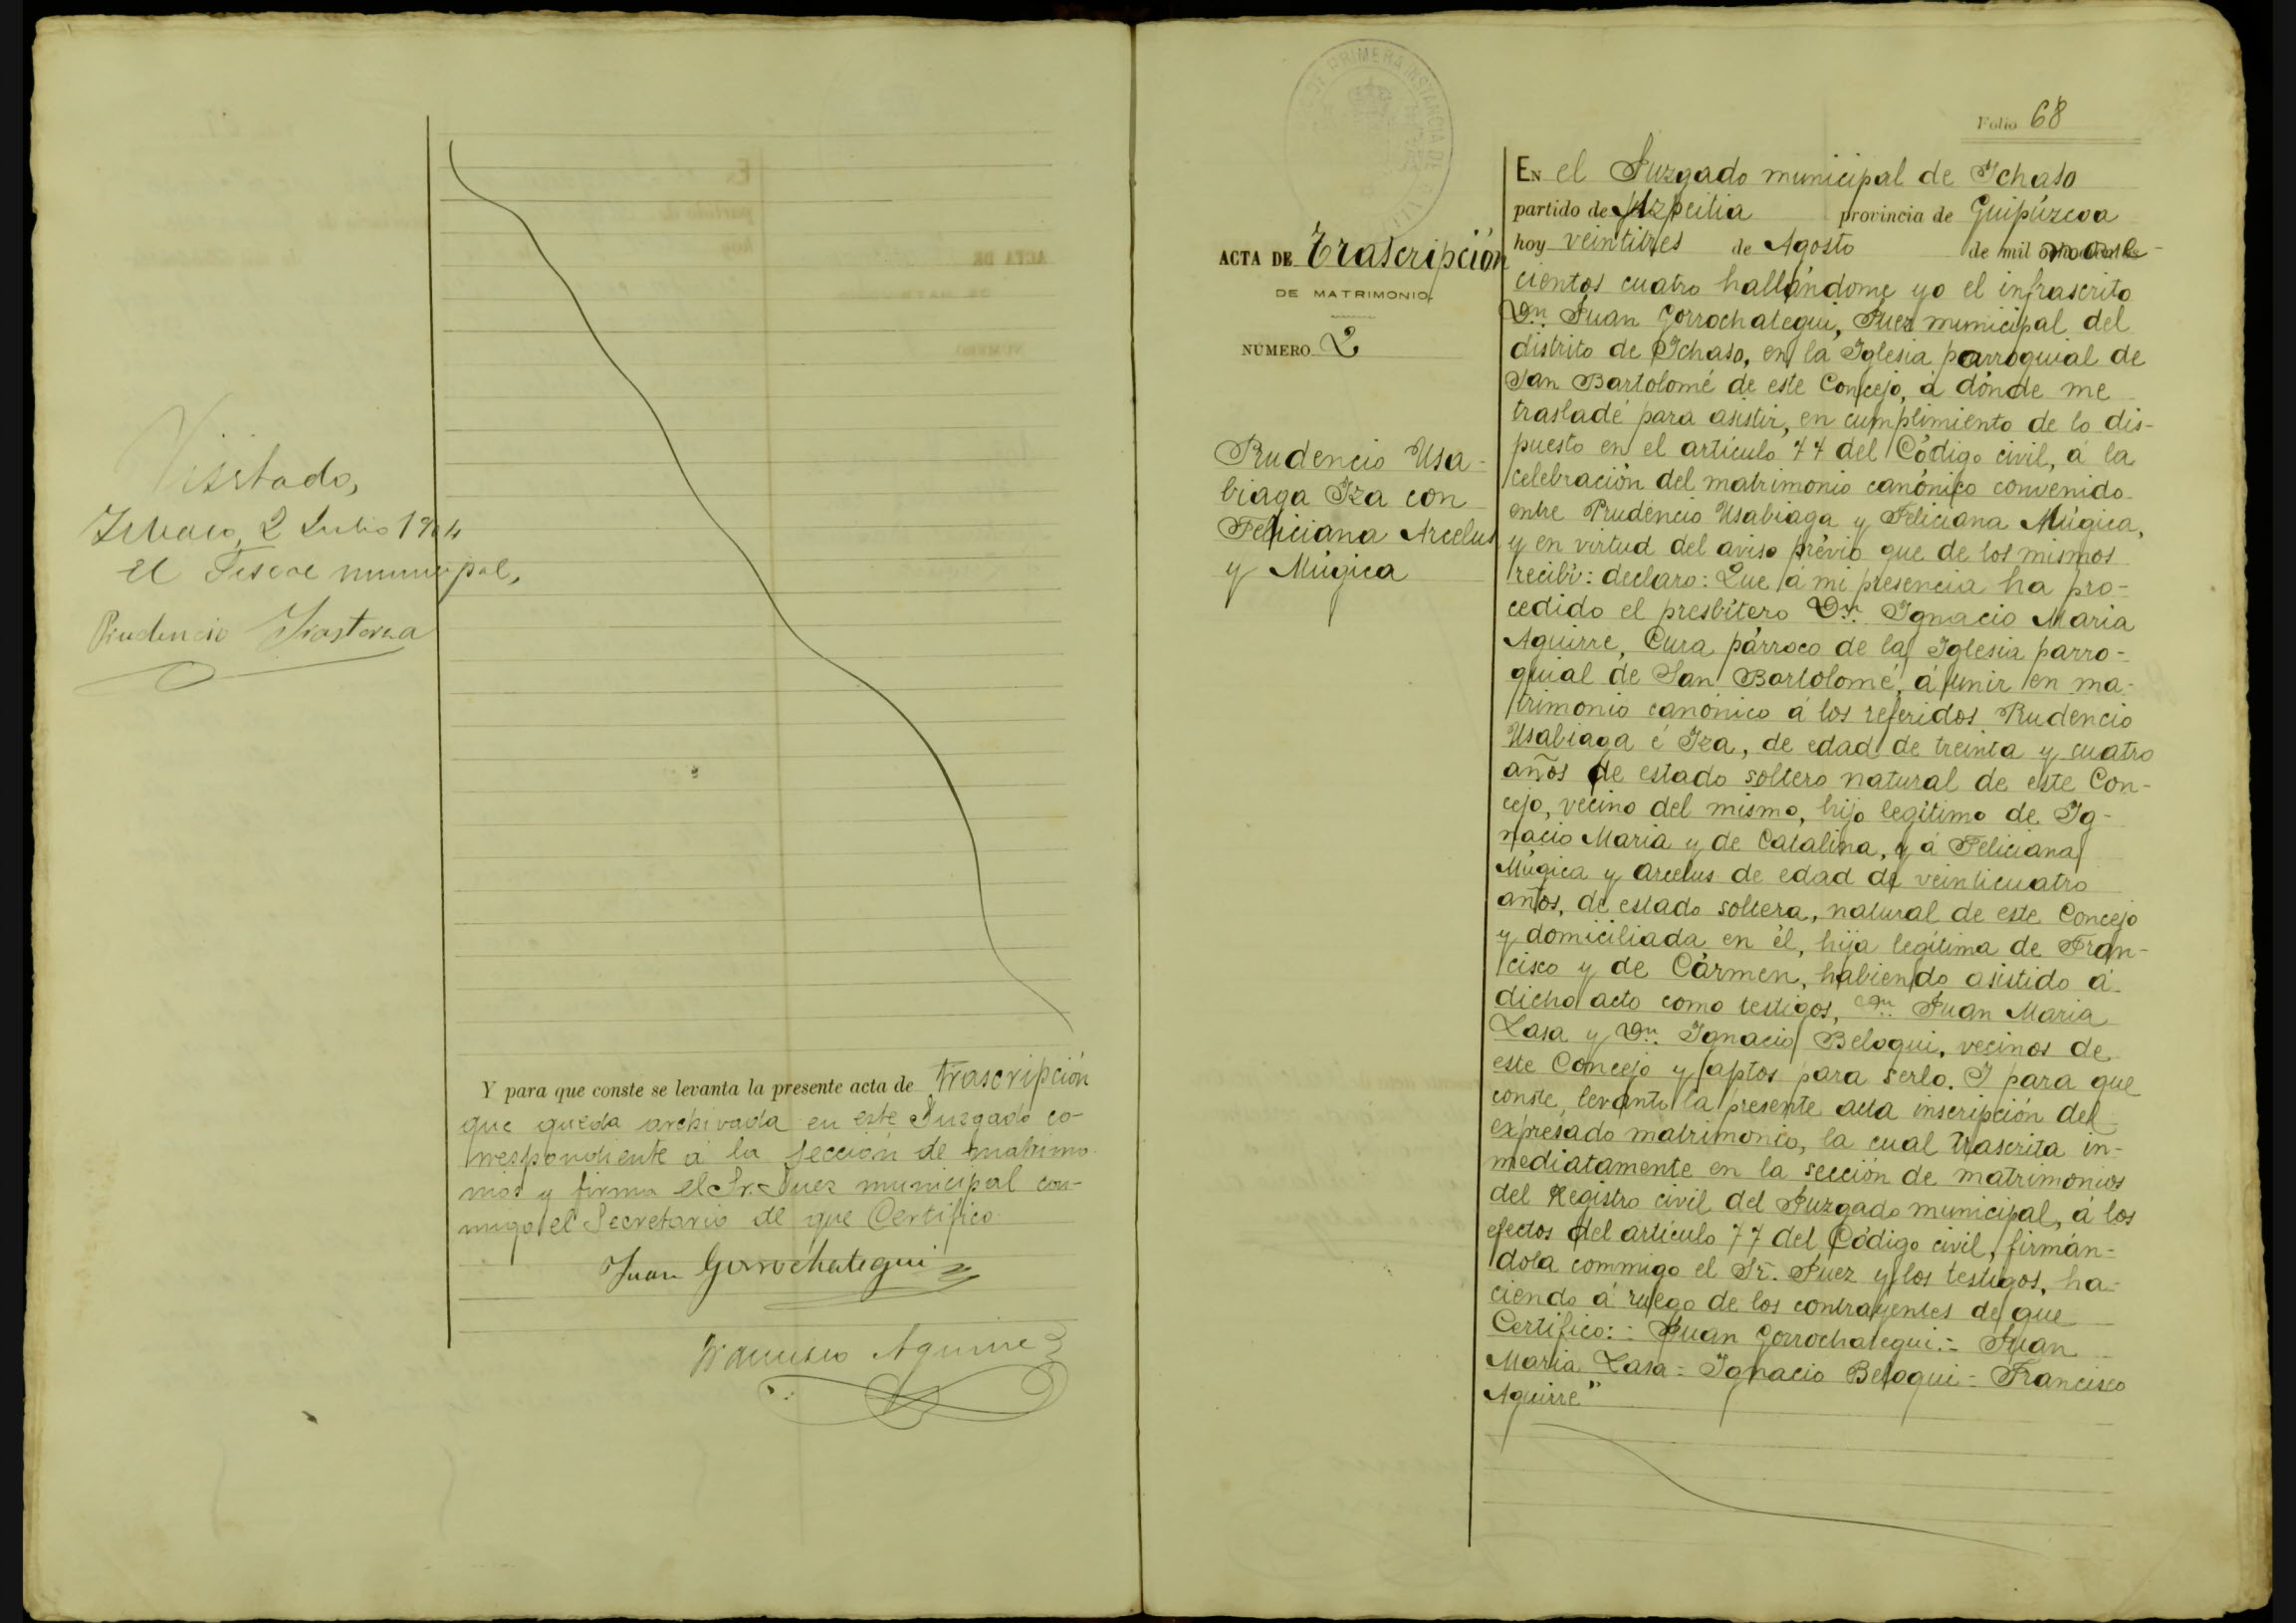 Visitado,
2 Julio 1904
El Fiscal municipal,
Prudencio
Y para que conste se levanta la presente acta de trascripción
que queda archivada en este Juzgado co-
rrespondiente á la sección de matrimo-
nios y firma el Sr. Juez municipal con-
migo el Secretario de que Certifico
Juan Gorrochategui
Francisco Aguirre
DE PRIMERA INSTANCIA DE
Folio 68
ACTA DE Trascripción
DE MATRIMONIO.
NÚMERO 2
Prudencio Usa-
biaga Iza con
Feliciana Arcelus
y Múgica
EN el Juzgado municipal de Ichaso
partido de Azpeitia provincia de Guipúzcoa
hoy veintitres de Agosto de mil nove-
cientos cuatro hallándome yo el infrascrito
Dn. Juan Gorrochategui, Juez municipal del
distrito de Ichaso, en la Iglesia parroquial de
San Bartolomé de este Concejo, á dónde me
trasladé para asistir, en cumplimiento de lo dis-
puesto en el artículo 77 del Código civil, á la
celebración del matrimonio canónico convenido
entre Prudencio Usabiaga y Feliciana Múgica,
y en virtud del aviso prévio que de los mismos
recibí: declaro: Que á mi presencia ha pro-
cedido el presbítero Dn. Ignacio Maria
Aguirre, Cura párroco de la Iglesia parro-
quial de San Bartolomé, á unir en ma-
trimonio canónico á los referidos Prudencio
Usabiaga é Iza, de edad de treinta y cuatro
años de estado soltero natural de este Con-
cejo, vecino del mismo, hijo legítimo de Ig-
nacio Maria y de Catalina, y á Feliciana
Múgica y Arcelus de edad de veinticuatro
años, de estado soltera, natural de este Concejo
y domiciliada en él, hija legítima de Fran-
cisco y de Cármen, habiendo asistido á
dicho acto como testigos, Dn. Juan Maria
Lasa y Dn. Ignacio Beloqui, vecinos de
este Concejo y aptos para serlo. Y para que
conste, levanto la presente acta inscripción del
expresado matrimonio, la cual trascrita in-
mediatamente en la sección de matrimonios
del Registro civil del Juzgado municipal, á los
efectos del artículo 77 del Código civil, firmán-
dola commigo el Sr. Juez y los testigos, ha-
ciendo á ruego de los contrayentes de que
Certifico:= Juan Gorrochategui.= Juan
Maria Lasa = Ignacio Beloqui = Francisco
Aguirre"